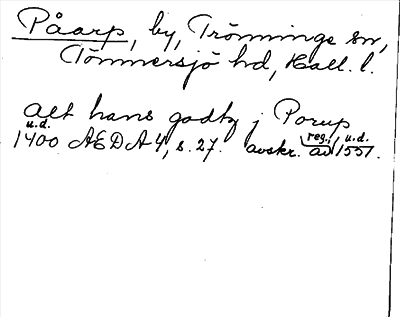 Påarp, by, Trönninge sn,
Tönnersjö hd, Hall. l.
alt hans godtz j Porup
u.d. reg., u.d.
1400 AEDA 4, s. 27. avskr. av 1551.